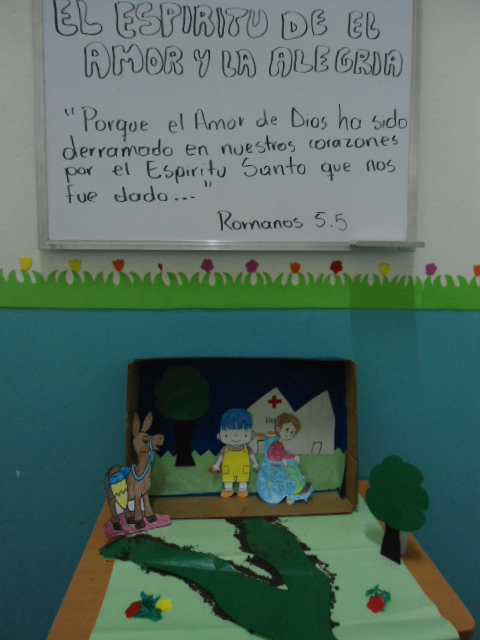 EL ESPIRITU DE EL
AMOR Y LA ALEGRIA
"Porque el Amor de Dios ha sido
derramado en nuestros corazones
por el Espiritu Santo que nos
fue dado..."
Romanos 5.5